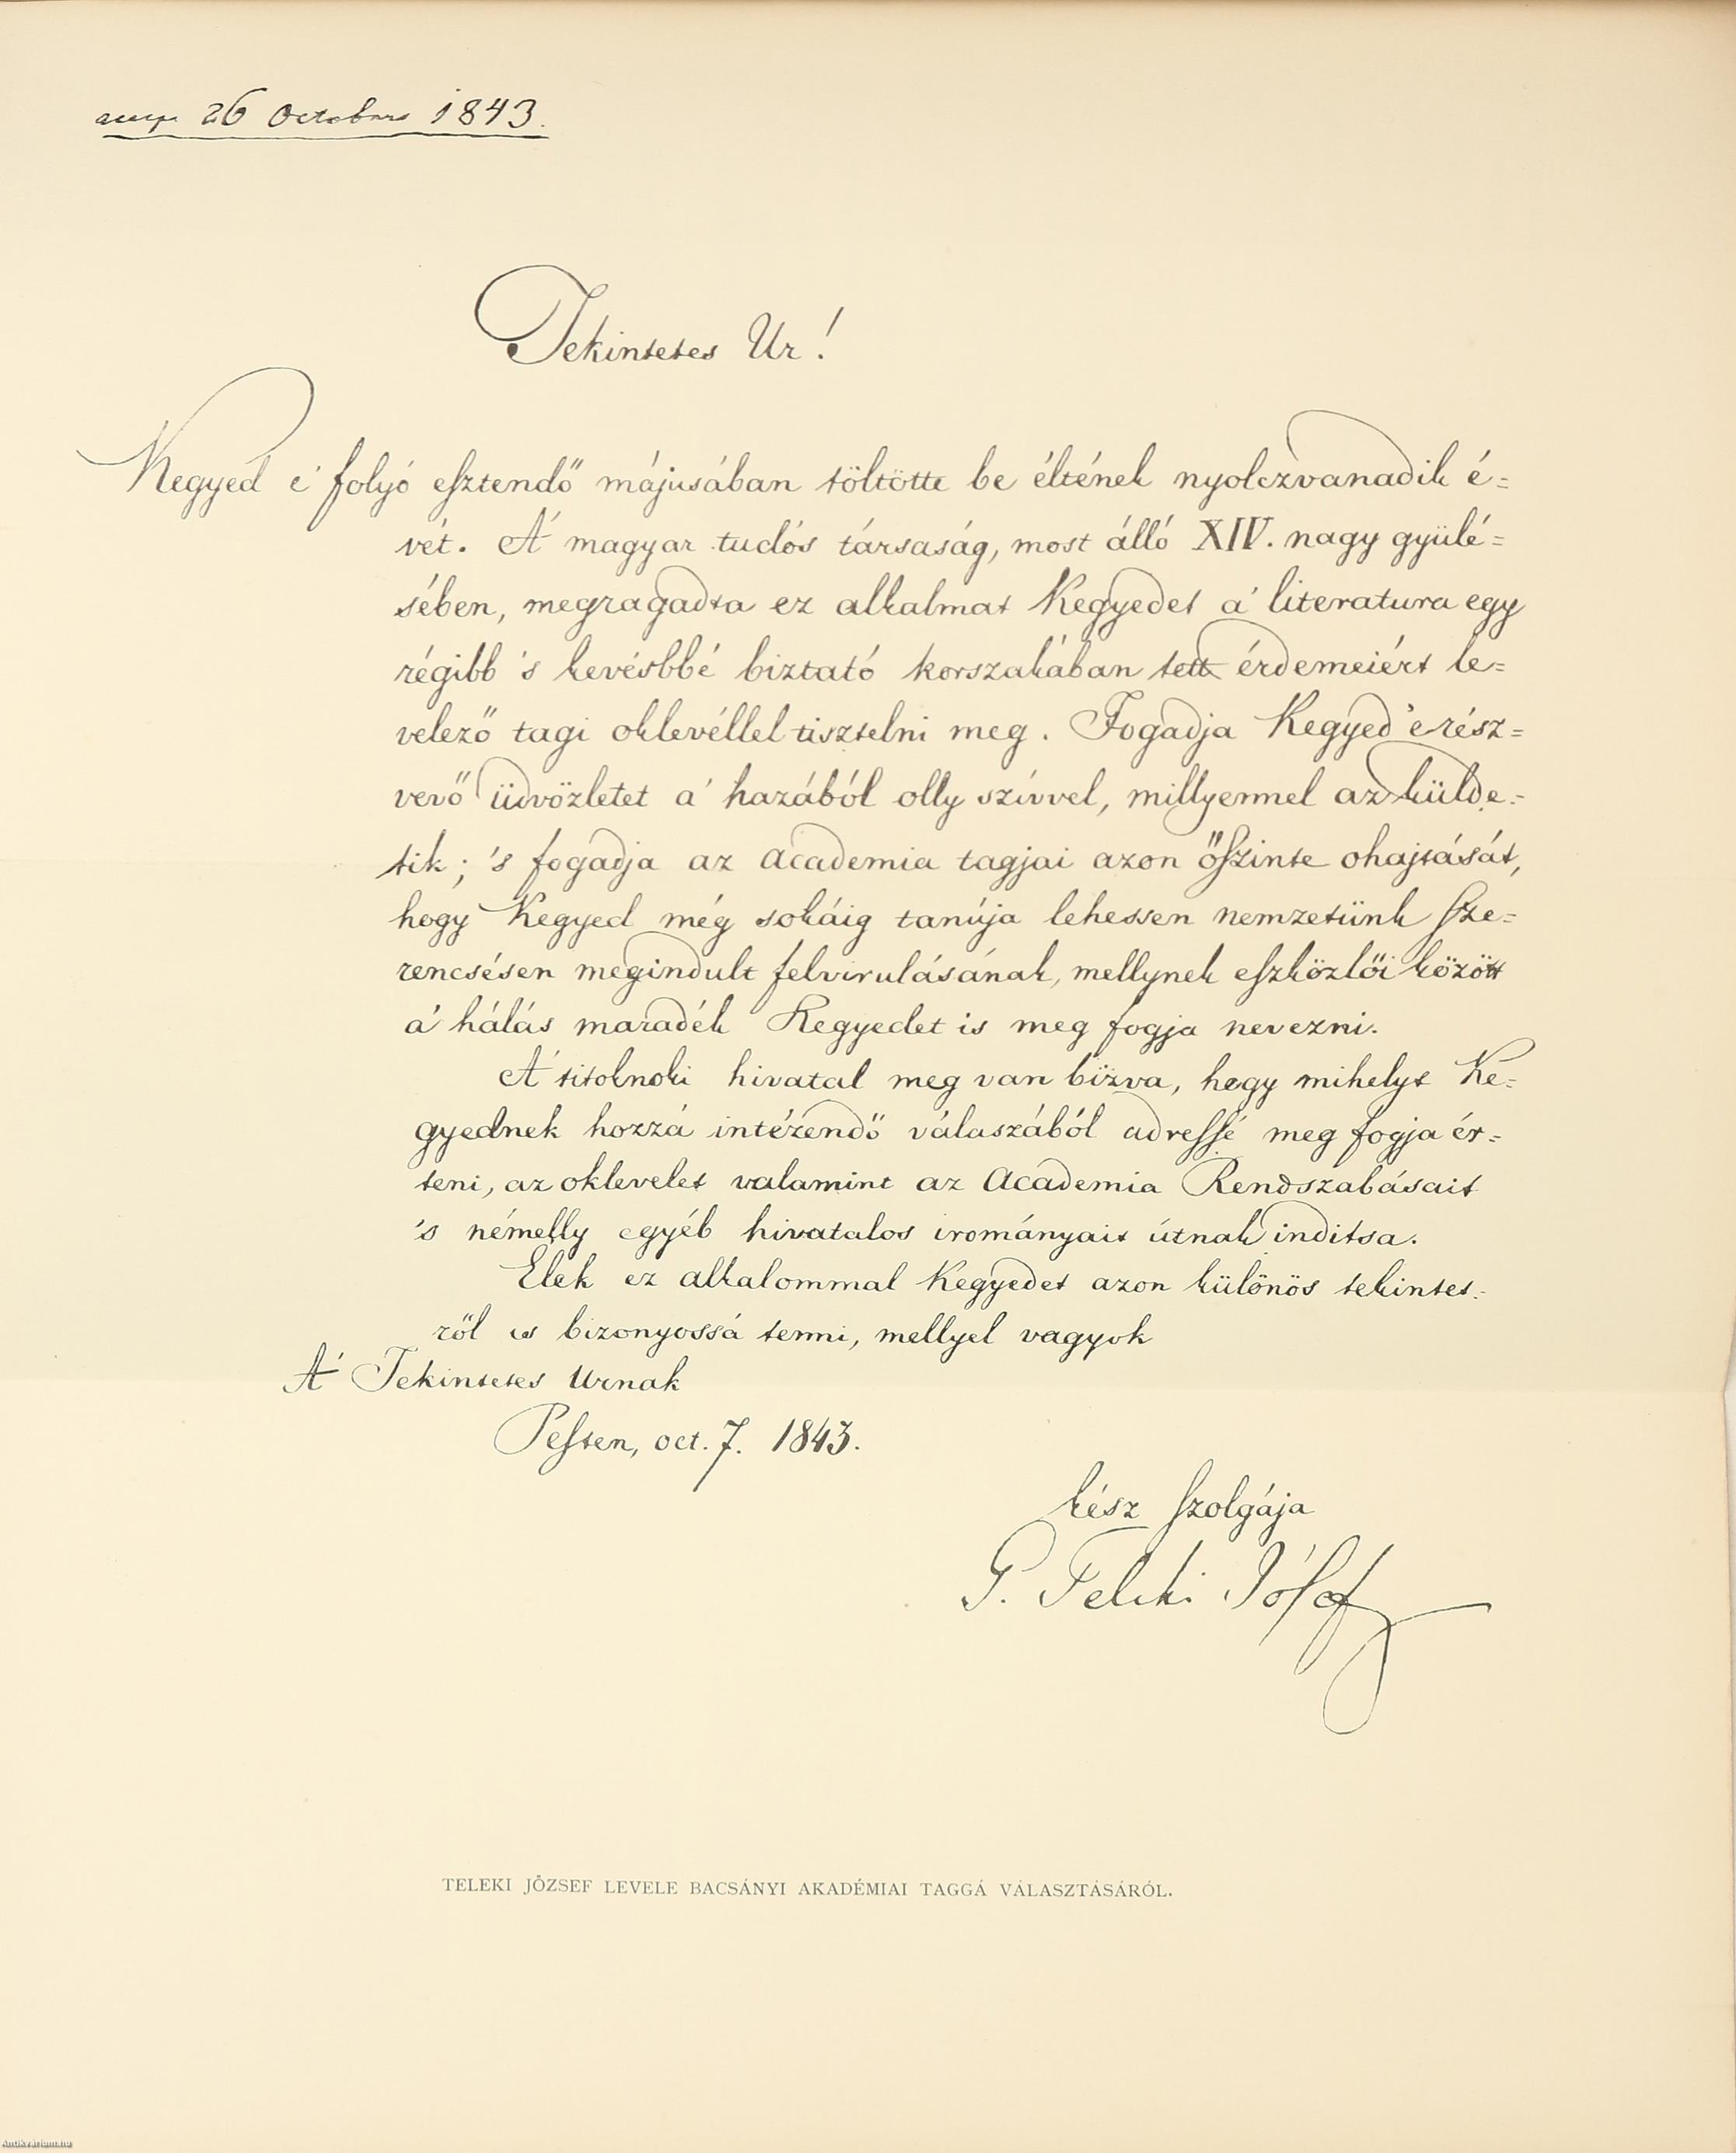 26 Octobris 1843.
Tekintetes Ur!
Kegyed e' folyó esztendő májusában töltötte be éltének nyolczvanadik é=
vét. A' magyar tudós társaság, most álló XIV. nagy gyülé=
sében, megragadta ez alkalmat Kegyedet a' literatura egy
régibb 's kevésbbé biztató korszakában tett érdemeiért le=
velező tagi oklevéllel tisztelni meg. Fogadja Kegyed e' rész=
vevő üdvözletet a' hazából olly szívvel, millyennel az külde=
tik; 's fogadja az Academia tagjai azon őszinte ohajtását,
hogy Kegyed még sokáig tanúja lehessen nemzetünk sze=
rencsésen megindult felvirulásának, mellynek eszközlői között
a' hálás maradék Kegyedet is meg fogja nevezni.
A' titoknoki hivatal meg van bízva, hogy mihelyt Ke=
gyednek hozzá intézendő válaszából adressé meg fogja ér=
teni, az oklevelet valamint az Academia Rendszabásait
's némelly egyéb hivatalos irományait útnak indítsa.
Élek ez alkalommal Kegyedet azon különös tekintet=
ről is bizonyossá tenni, mellyel vagyok
A' Tekintetes Urnak
Pesten, oct. 7. 1843.
kész szolgája
G. Teleki Jósef
TELEKI JÓZSEF LEVELE BACSÁNYI AKADÉMIAI TAGGÁ VÁLASZTÁSÁRÓL.
Antikvárium.hu